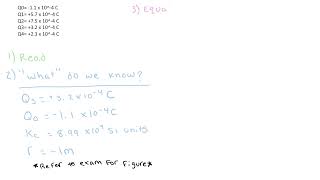 Q0= -1.1 x 10^-4 C
Q1= +5.7 x 10^-4 C
Q2= +7.5 x 10^-4 C
Q3= +3.2 x 10^-4 C
Q4= +2.3 x 10^-4 C
3) Equa
1) Read
2) "What" do we know?
Q3 = +3.2 x 10^-4 C
Q0 = -1.1 x 10^-4 C
Kc = 8.99 x 10^9 SI units
r = -1m
*Refer to exam for figure*